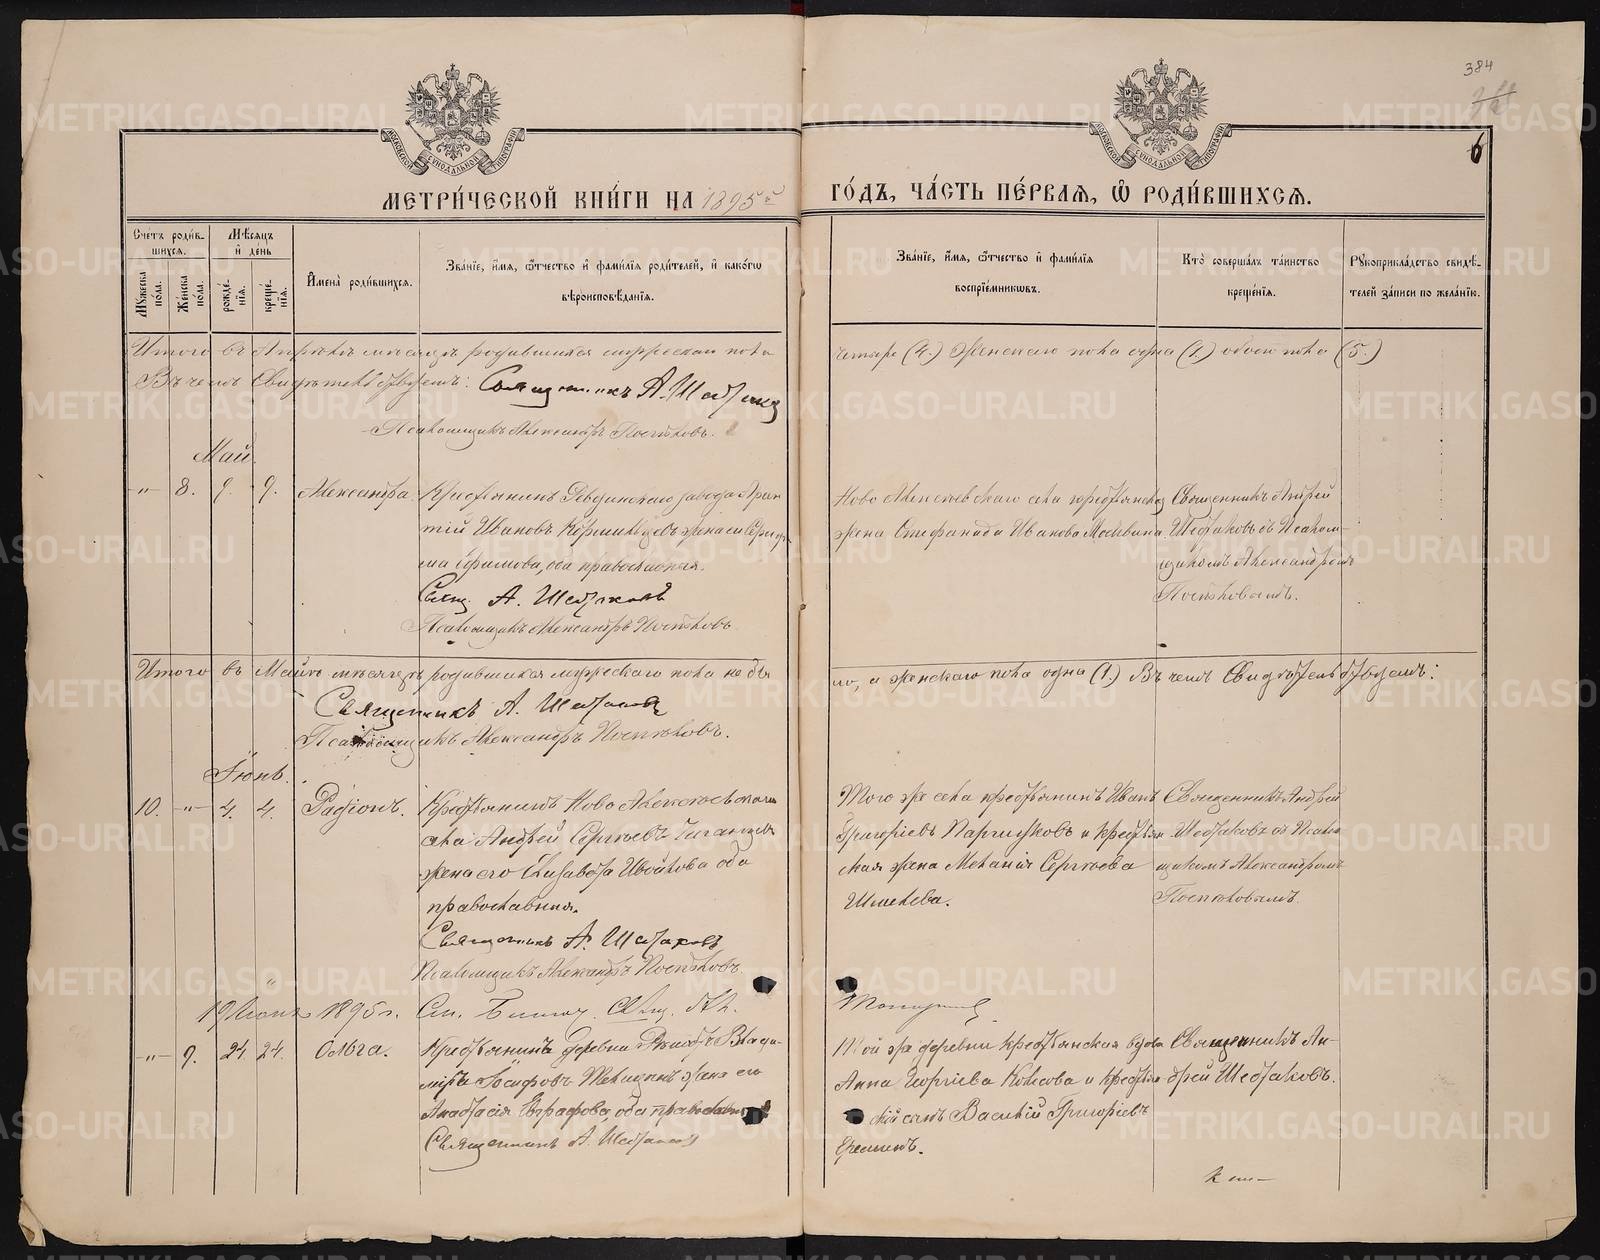 384
6
МОСКОВСКОЙ СѴНОДАЛЬНОЙ ТИПОГРАФІИ
МОСКОВСКОЙ СѴНОДАЛЬНОЙ ТИПОГРАФІИ
МЕТРИ́ЧЕСКОЙ КНИ́ГИ НА 1895й
ГО́ДЪ, ЧА́СТЬ ПЕ́РВАѦ, Ѽ РОДИ́ВШИХСѦ.
Сче́тъ роди́в-
шихсѧ.
Мꙋ́жеска по́ла.
Же́нска по́ла.
Мѣ́сѧцъ
и҆ де́нь
рожде́нїѧ.
креще́нїѧ.
И҆мена̀ роди́вшихсѧ.
Зва́нїе, и҆́мѧ, ѻ҆́тчество и҆ фами́лїѧ роди́телей, и҆ како́гѡ
вѣроисповѣ́данїѧ.
Зва́нїе, и҆́мѧ, ѻ҆́тчество и҆ фами́лїѧ
воспрїе́мникѡвъ.
Кто̀ соверша́лъ та́инство
креще́нїѧ.
Рꙋкоприкла́дство свидѣ́-
телей за́писи по жела́нїю.
Итого въ Апрѣлѣ мѣсяцѣ родившихся мужескаго пола
четыре (4.) женскаго пола одна (1.) обоего пола (5.)
Въ чемъ свидѣтельствуемъ: Священникъ А. Шестаковъ
Псаломщикъ Александръ Поспѣловъ.
Май.
„ 8. 9. 9. Александра. Крестьянинъ Ревдинскаго завода
Ивановъ жена его
Ефимова, оба православные.
Свящ. А. Шестаковъ
Псаломщикъ Александръ Поспѣловъ.
Ново Алексѣевскаго села крестьянская
жена Стефанида Иванова Москвина.
Священникъ Андрей
Шестаковъ съ Псалом-
щикомъ Александромъ
Поспѣловымъ.
Итого въ Маѣ мѣсяцѣ родившихся мужескаго пола не бы
ло, а женскаго пола одна (1.) Въ чемъ Свидѣтельствуемъ:
Священникъ А. Шестаковъ
Псаломщикъ Александръ Поспѣловъ.
Іюнь.
10. „ 4. 4. Радіонъ. Крестьянинъ Ново Алексѣевскаго
села Андрей Сергѣевъ
жена его Елизавета Ивойлова оба
православные.
Священникъ А. Шестаковъ
Псаломщикъ Александръ Поспѣловъ.
Того же села крестьянинъ Иванъ
Григорьевъ и крестьян
ская жена Меланія Сергѣева
Шмелева.
Священникъ Андрей
Шестаковъ съ Псалом
щикомъ Александромъ
Поспѣловымъ.
19 Іюня 1895 г.
„ 9. 24. 24. Ольга. Крестьянинъ деревни Влади-
міръ Іосифовъ жена его
Анастасія Евграфова, оба православные
Священникъ А. Шестаковъ
Той же деревни крестьянская вдова
Анна Георгіева и крестьян
скій сынъ Василій Григорьевъ
Священникъ Ан-
дрей Шестаковъ.